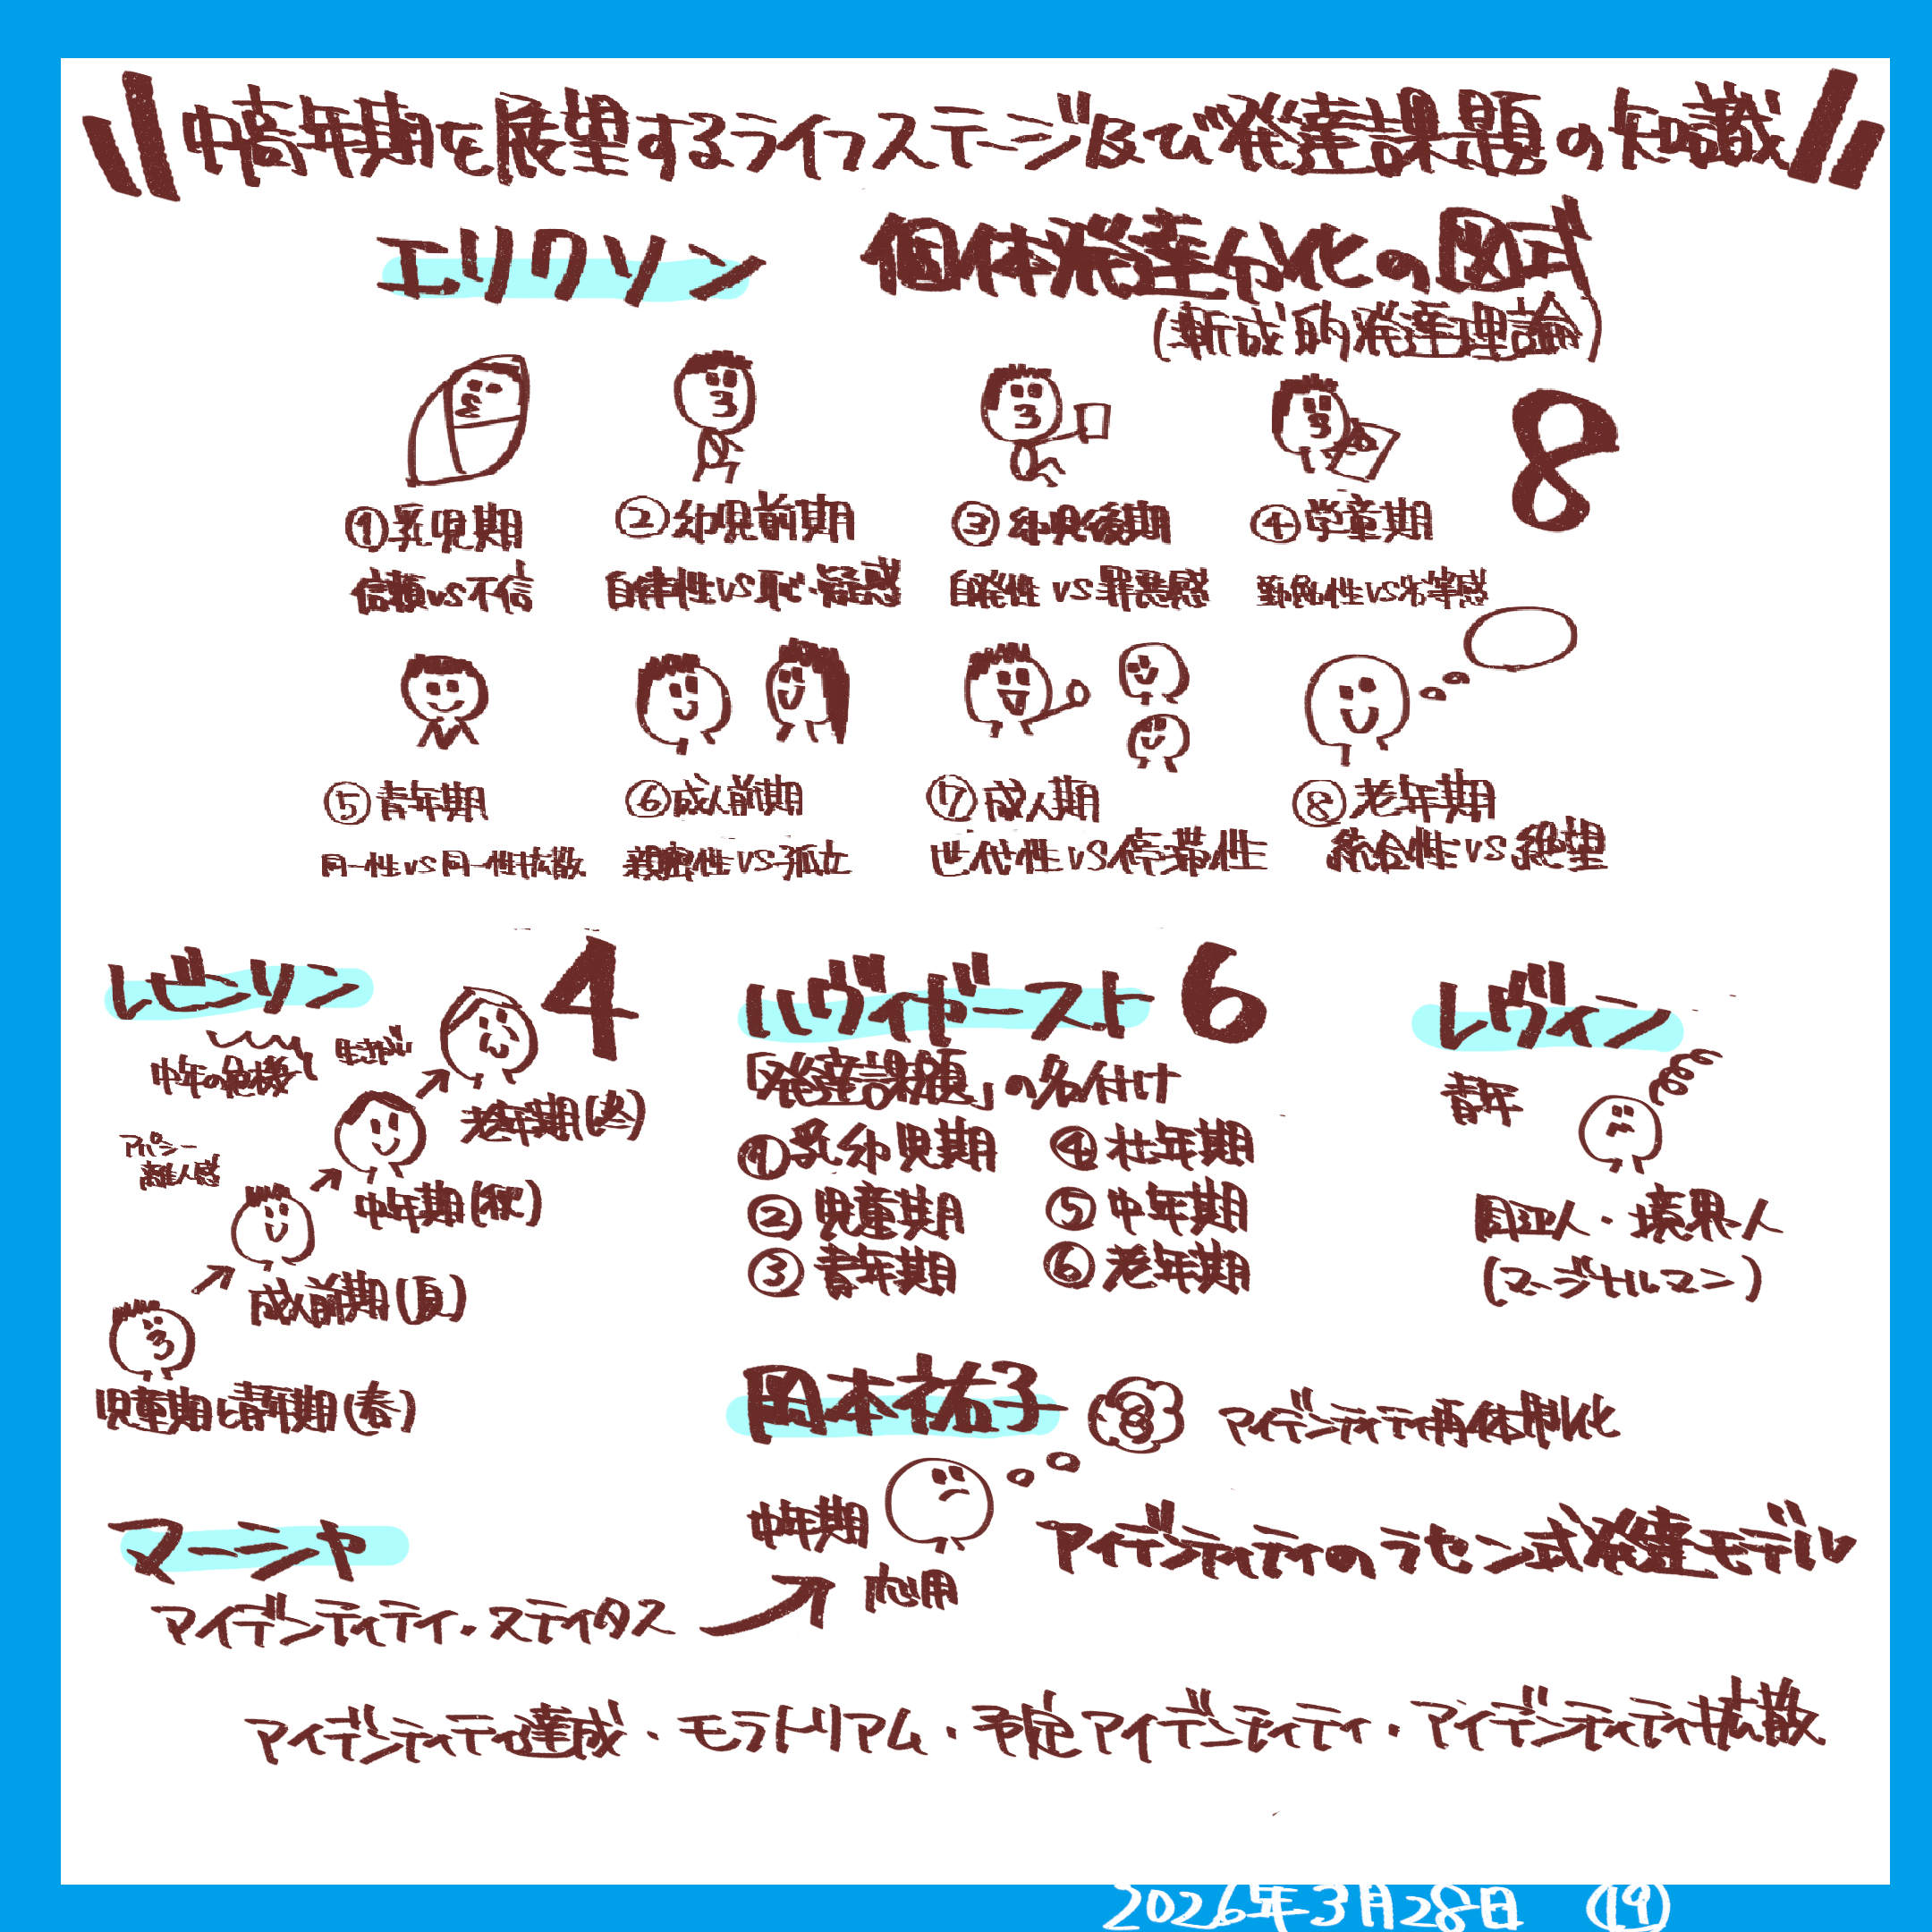 中高年期を展望するライフステージ及び発達課題の知識
エリクソン 個体発達分化の図式
(漸成的発達理論)
8
①乳児期 ②幼児前期 ③幼児後期 ④学童期
信頼vs不信 自律性vs恥・疑惑 自発性vs罪悪感 勤勉性vs劣等感
⑤青年期 ⑥成人前期 ⑦成人期 ⑧老年期
同一性vs同一性拡散 親密性vs孤立 世代性vs停滞性 統合性vs絶望
レビンソン 4
中年の危機
生きがい
アパシー
離人感
老年期(冬)
中年期(秋)
成人前期(夏)
児童期と青年期(春)
ハヴィガースト 6
「発達課題」の名付け
①乳幼児期 ④壮年期
②児童期 ⑤中年期
③青年期 ⑥老年期
レヴィン
青年
周辺人・境界人
(マージナルマン)
岡本祐子 アイデンティティ再体制化
中年期
アイデンティティのラセン式発達モデル
マーシャ
応用
アイデンティティ・ステイタス
アイデンティティ達成・モラトリアム・予定アイデンティティ・アイデンティティ拡散
2026年3月28日 (19)